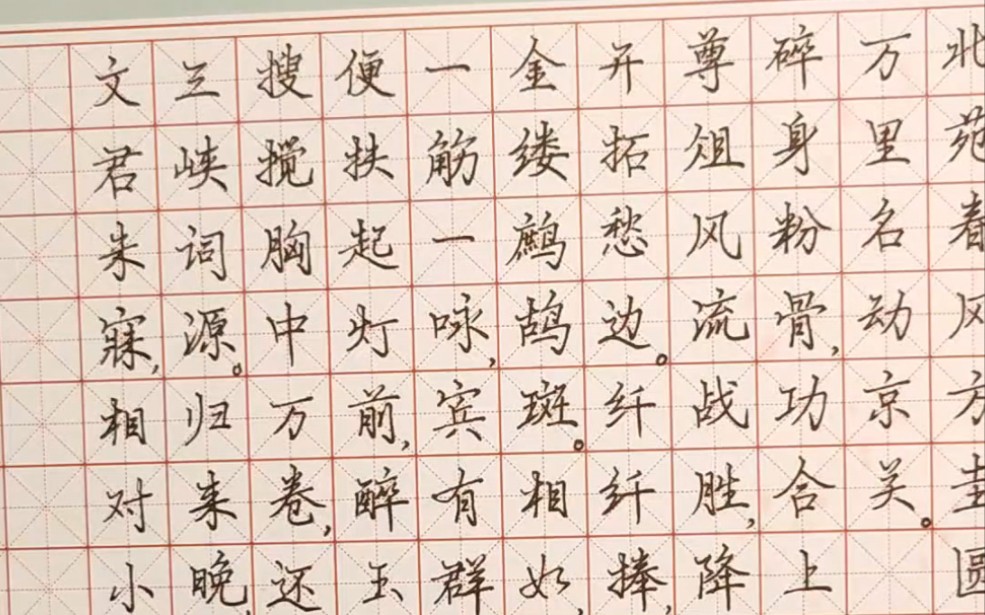 北苑春风方圭圆
万里名动京关。
碎身粉骨,功合上
尊俎风流战胜,降
开拓愁边。纤纤捧,
金缕鹧鸪斑。相如,
一筋一咏,宾有群
便扶起灯前,醉玉
搜搅胸中万卷,还
三峡词源。归来晚,
文君未寐,相对小